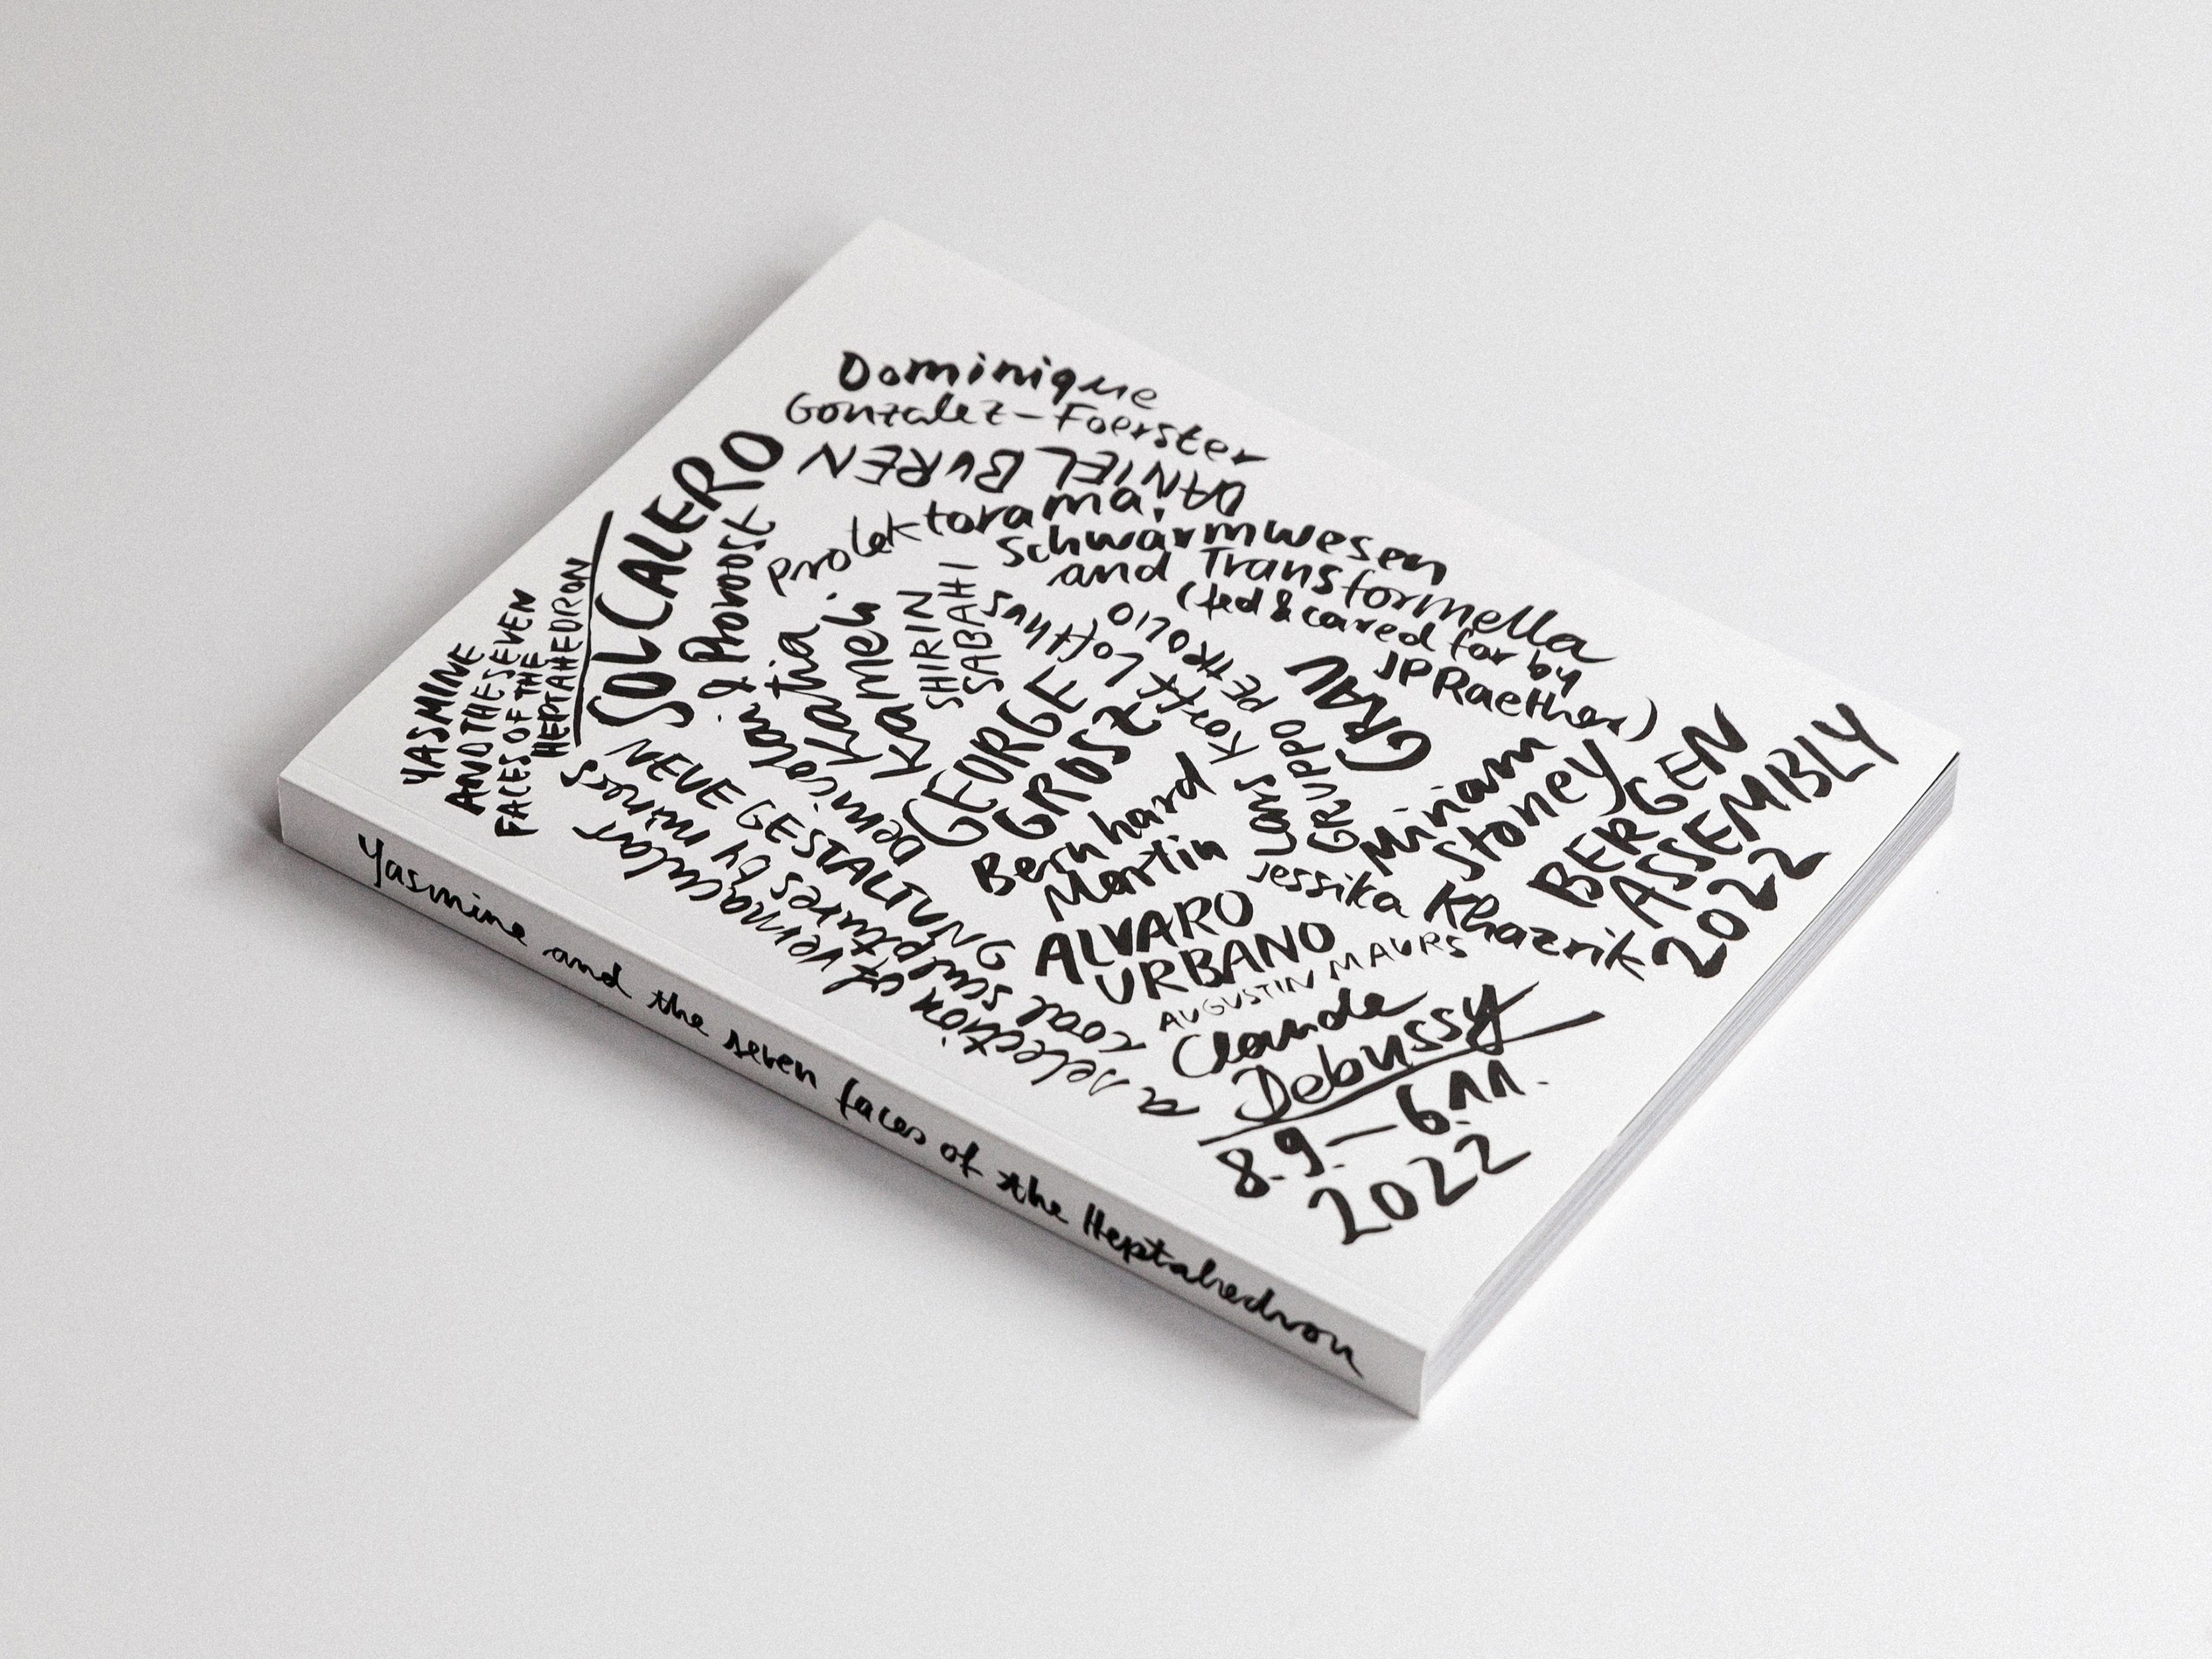 Dominique
Gonzalez-Foerster
DANIEL BUREN
protektorama!
Schwarmwesen
and Transformella
(fed & cared for by
JP Raether)
SOL CALERO
YASMINE
AND THE SEVEN
FACES OF THE
HEPTAHEDRON
& Provoost
Nikolai
Khatia
Kameli
SHIRIN
SABAHI
GEORGE
GROSZ
Lars Korff Lofthus
GRUPPO PETROLIO
GRAU
Miriam
Stoney
BERGEN
ASSEMBLY
2022
NEUE GESTALTUNG
a selection of vernacular
coal sculptures by miners
Bernhard
Martin
Jessika Khazrik
ALVARO
URBANO
AUGUSTIN MAURS
Claude
Debussy
8.9.—6.11.
2022
Yasmine and the seven faces of the Heptahedron